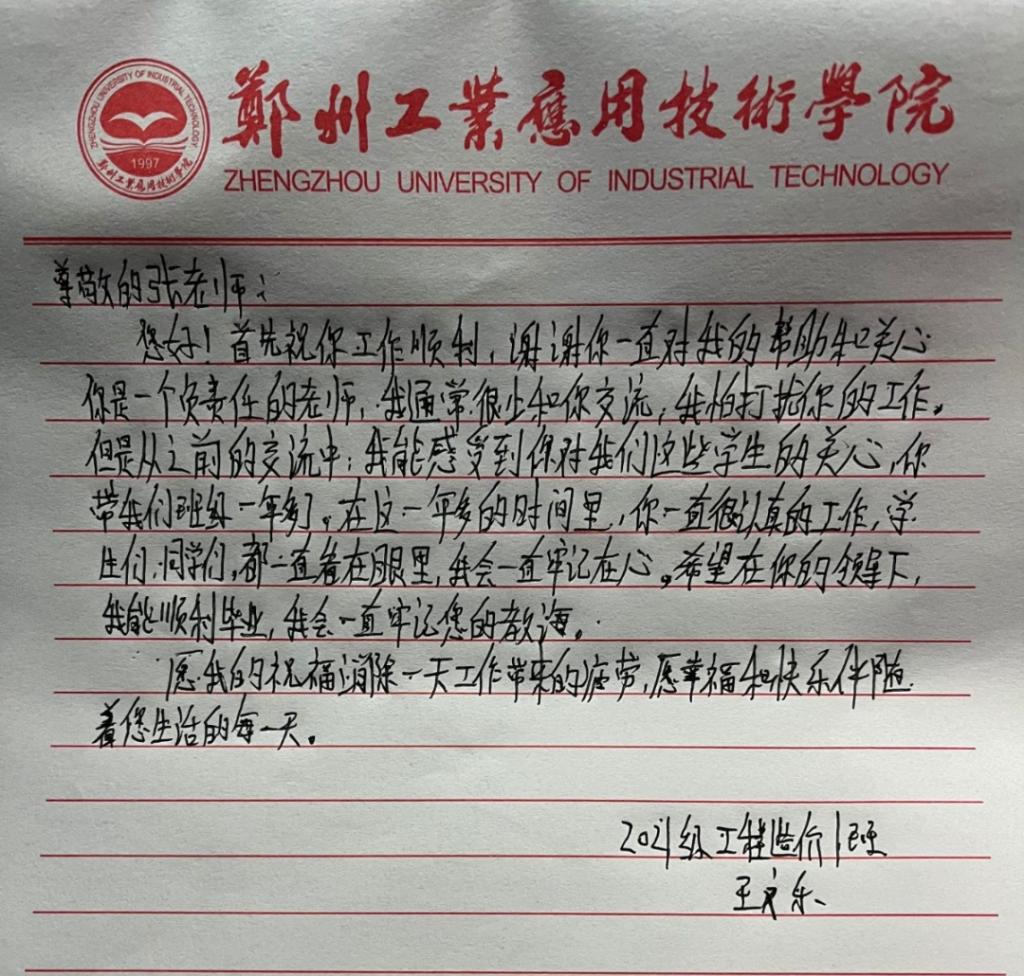 ZHENGZHOU UNIVERSITY OF INDUSTRIAL TECHNOLOGY
1997
郑州工業應用技術學院
鄭州工業應用技術學院
ZHENGZHOU UNIVERSITY OF INDUSTRIAL TECHNOLOGY
尊敬的张老师：
您好！首先祝你工作顺利，谢谢你一直对我的帮助和关心
你是一个负责任的老师，我通常很少和你交流，我怕打扰你的工作。
但是从之前的交流中；我能感受到你对我们这些学生的关心，你
带我们班级一年多了。在这一年多的时间里，你一直很认真的工作，学
生们，同学们，都一直看在眼里，我会一直牢记在心。希望在你的领导下，
我能顺利毕业，我会一直牢记您的教诲。
愿我的祝福消除一天工作带来的疲劳，愿幸福和快乐伴随
着您生活的每一天。
2021级工程造价1班
王文乐